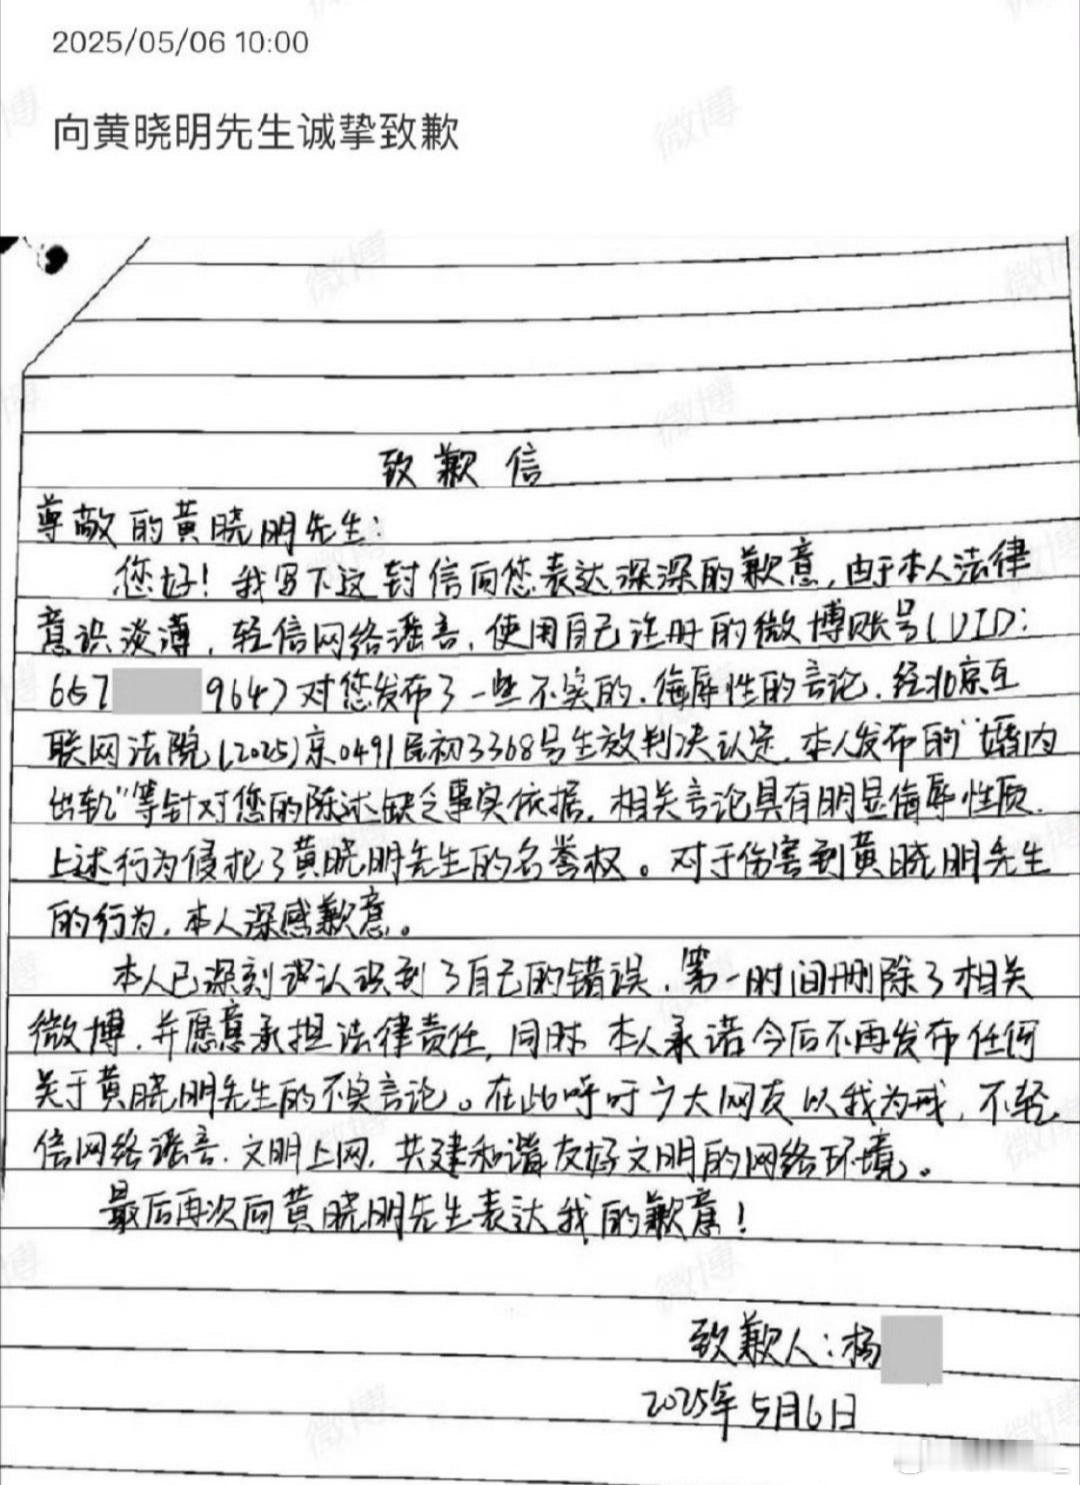 2025/05/06 10:00
向黄晓明先生诚挚致歉
致歉信
尊敬的黄晓明先生:
您好!我写下这封信向您表达深深的歉意,由于本人法律
意识淡薄,轻信网络谣言,使用自己注册的微博账号(UID:
657 9647对您发布了一些不实的、侮辱性的言论,经北京互
联网法院(2025)京0491民初3368号生效判决认定,本人发布的“婚内
出轨”等针对您的陈述缺乏事实依据,相关言论具有明显侮辱性质,
上述行为侵犯了黄晓明先生的名誉权。对于伤害到黄晓明先生
的行为,本人深感歉意。
本人已深刻认识到了自己的错误,第一时间删除了相关
微博,并愿意承担法律责任,同时,本人承诺今后不再发布任何
关于黄晓明先生的不实言论。在此呼吁广大网友以我为戒,不轻
信网络谣言,文明上网,共建和谐友好文明的网络环境。
最后再次向黄晓明先生表达我的歉意!
致歉人:杨
2025年5月6日
微博